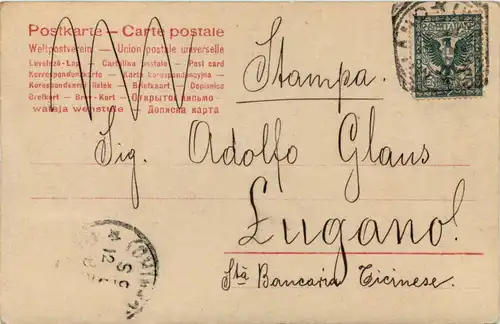 Postkarte – Carte postale
Weltpostverein – Union postale universelle
Levelező-Lap – Cartolina postale – Post card
Korrespondenzkarte – Karta korespondencyjna –
Korespondenční lístek – Briefkaart – Dopisnice
Brefkort – Brev-Kort – Открытое письмо
– Дописна карта
Stampa.
Sig. Adolfo Glaus
Lugano!
Stà Bancaria Ticinese.